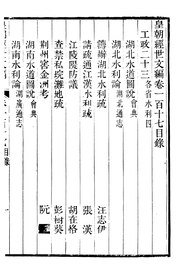 皇朝經世文編卷一百十七目錄
工政二十三各省水利四
湖北水道圖說會典
湖北水利論湖廣通志
籌辦湖北水利疏 汪志伊
請疏通江漢水利疏 張漢
江陵隄防議 胡在恪
查禁私垸灘地疏 彭樹葵
荊州窖金洲考 阮
湖南水道圖說會典
湖南水利論湖廣通志